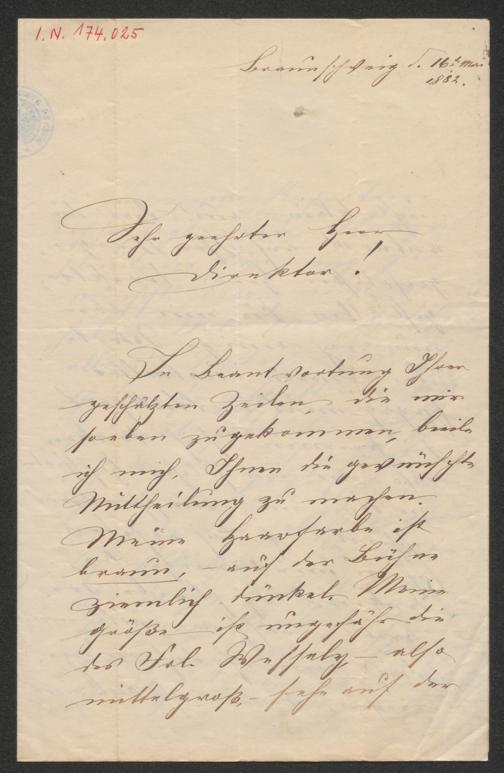 I. N. 174.025
Braunschweig d. 16t. Mai
1882.
Sehr geehrter Herr
Direktor!
In Beantwortung Ihrer
geschätzten Zeilen, die mir
soeben zugekommen, beeile
ich mich, Ihnen die gewünschte
Mittheilung zu machen.
Meine Haarfarbe ist
braun, – auf der Bühne
ziemlich dunkel. Meine
größe ist ungefähr die
des Frl. Wessely – also
mittelgroß, – sehe auf der